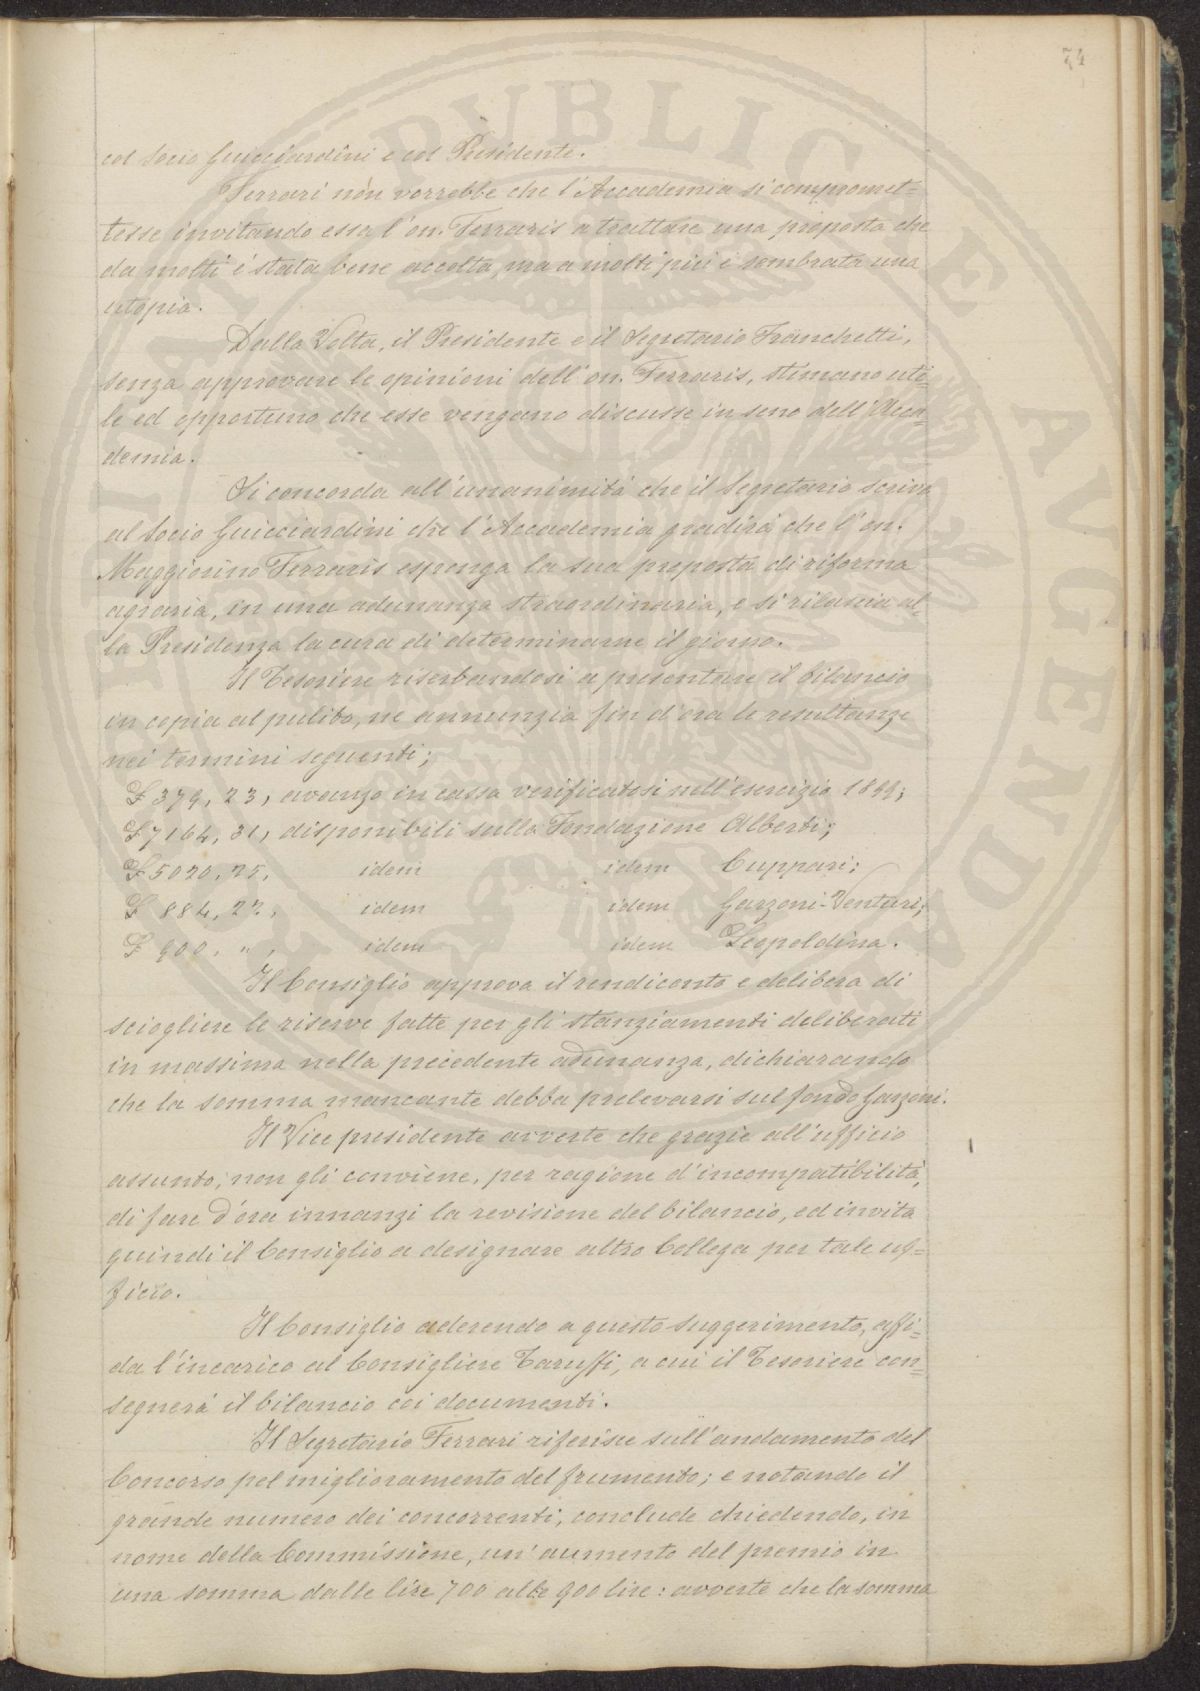 74
col Socio Guicciardini e col Presidente.
Ferrari non vorrebbe che l'Accademia si compromet=
tesse invitando essa l'on. Ferraris a trattare una proposta che
da molti è stata bene accolta, ma a molti più è sembrata una
utopia.
Dalla Volta, il Presidente e il Segretario Franchetti,
senza approvare le opinioni dell'on. Ferraris, stimano uti=
le ed opportuno che esse vengano discusse in seno dell'Acca=
demia.
Si concorda all'unanimità che il Segretario scriva
al Socio Guicciardini che l'Accademia gradirà che l'on.
Maggiorino Ferraris esponga la sua proposta di riforma
agraria, in una adunanza straordinaria, e si rilascia al=
la Presidenza la cura di determinarne il giorno.
Il Tesoriere riserbandosi a presentare il bilancio
in copia al pulito, ne annunzia fin d'ora le resultanze
nei termini seguenti;
£ 379, 23, avanzo in cassa verificatosi nell'esercizio 1899;
£ 7164, 31, disponibili sulla Fondazione Alberti;
£ 5020, 25, idem idem Cuppari;
£ 884, 22, idem idem Garzoni-Venturi;
£ 900, ", idem idem Leopoldina.
Il Consiglio approva il rendiconto e delibera di
sciogliere le riserve fatte per gli stanziamenti deliberati
in massima nella precedente adunanza, dichiarando
che la somma mancante debba prelevarsi sul fondo Garzoni.
Il Vice presidente avverte che grazie all'ufficio
assunto, non gli conviene, per ragione d'incompatibilità,
di fare d'ora innanzi la revisione del bilancio, ed invita
quindi il Consiglio a designare altro Collega per tale uf=
ficio.
Il Consiglio aderendo a questo suggerimento, affi=
da l'incarico al Consigliere Taruffi, a cui il Tesoriere con=
segnerà il bilancio coi documenti.
Il Segretario Ferrari riferisce sull'andamento del
Concorso pel miglioramento del frumento; e notando il
grande numero dei concorrenti, conclude chiedendo, in
nome della Commissione, un'aumento del premio in
una somma dalle lire 700 alle 900 lire: avverte che la somma
PUBLICAE AUGENDAE